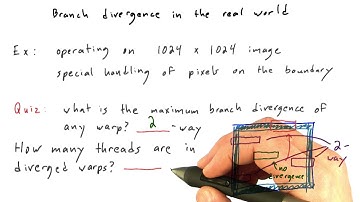 Branch divergence in the real world
Ex: operating on 1024 x 1024 image
special handling of pixels on the boundary
Quiz: what is the maximum branch divergence of
any warp? 2 -way
How many threads are in
diverged warps?
no
divergence
2-
way